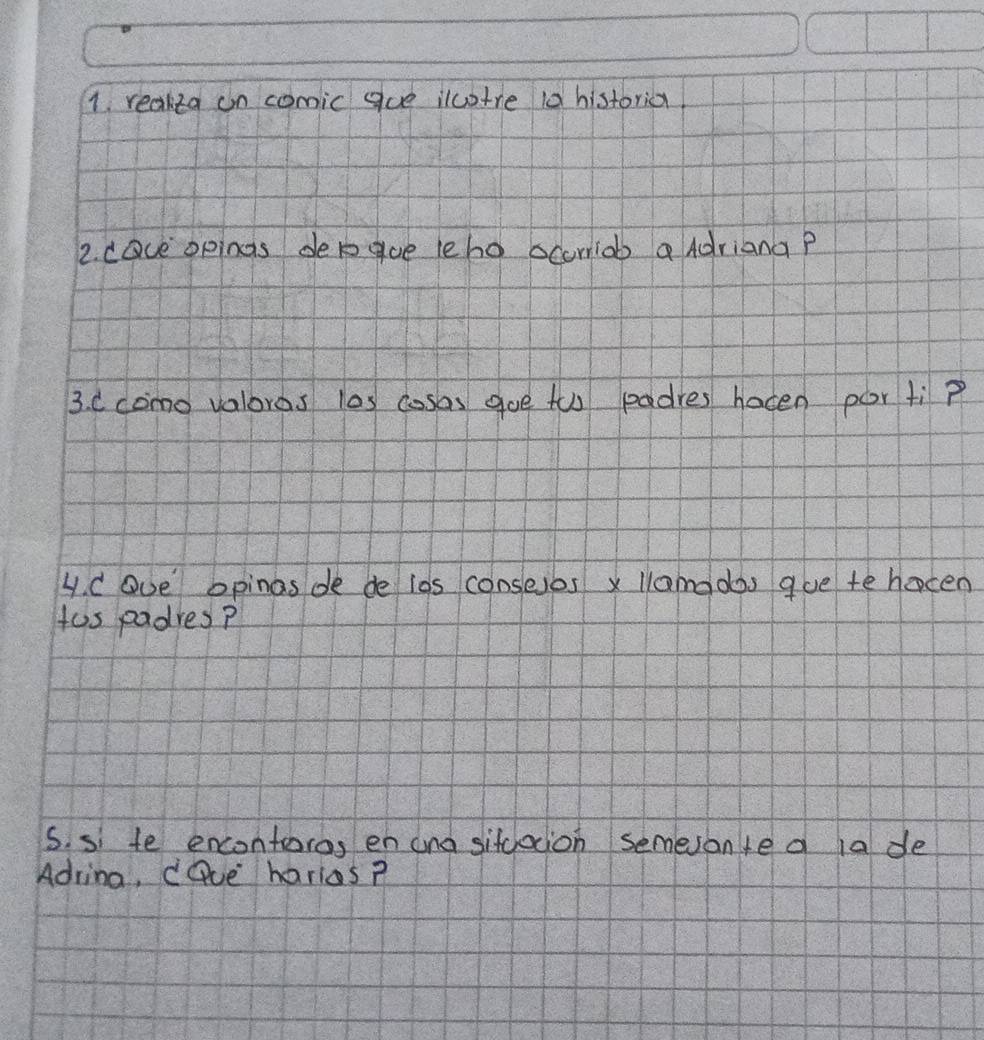 1. realiza un comic que ilustre la historia.
2. ¿Qué opinas de lo que le ha ocurrido a Adriana?
3. ¿cómo valoras las cosas que tus padres hacen por ti?
4. ¿Qué opinas de de los consejos y llamados que te hacen
tus padres?
5. si te encontaras en una situación semejante a la de
Adrina, ¿Qué harias?